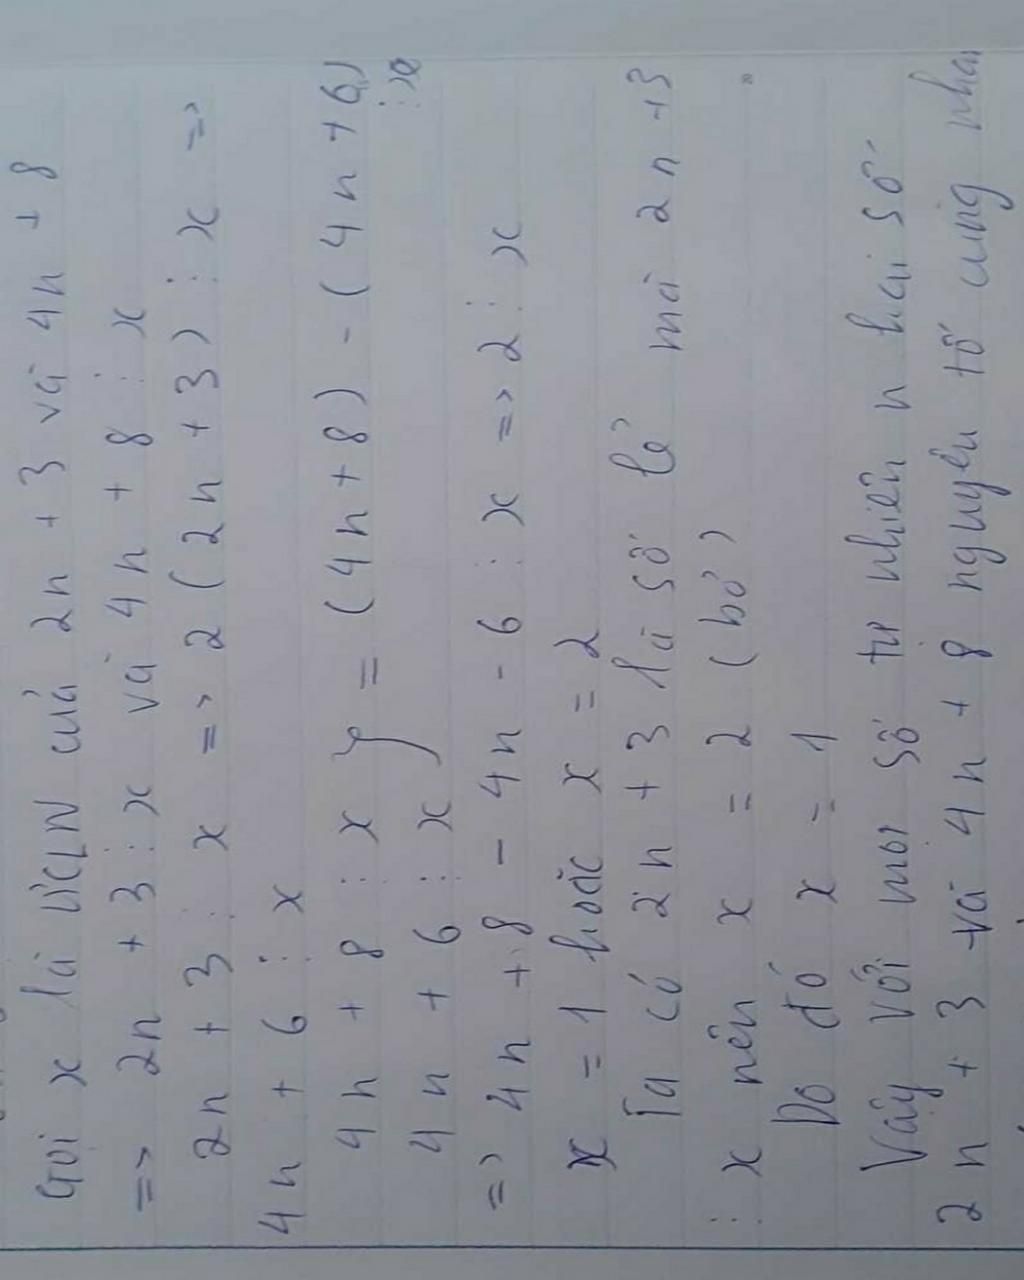 Gọi x là ƯCLN của 2n + 3 và 4n + 8
=> 2n + 3 ⋮ x và 4n + 8 ⋮ x
2n + 3 ⋮ x => 2 (2n + 3) ⋮ x =>
4n + 6 ⋮ x
4n + 8 ⋮ x } = (4n + 8) - (4n + 6)
4n + 6 ⋮ x } ⋮ x
=> 4n + 8 - 4n - 6 ⋮ x => 2 ⋮ x
x = 1 hoặc x = 2
Ta có 2n + 3 là số lẻ mà 2n + 3
⋮ x nên x = 2 (bỏ)
Do đó x = 1
Vậy với mọi số tự nhiên n hai số
2n + 3 và 4n + 8 nguyên tố cùng nhau